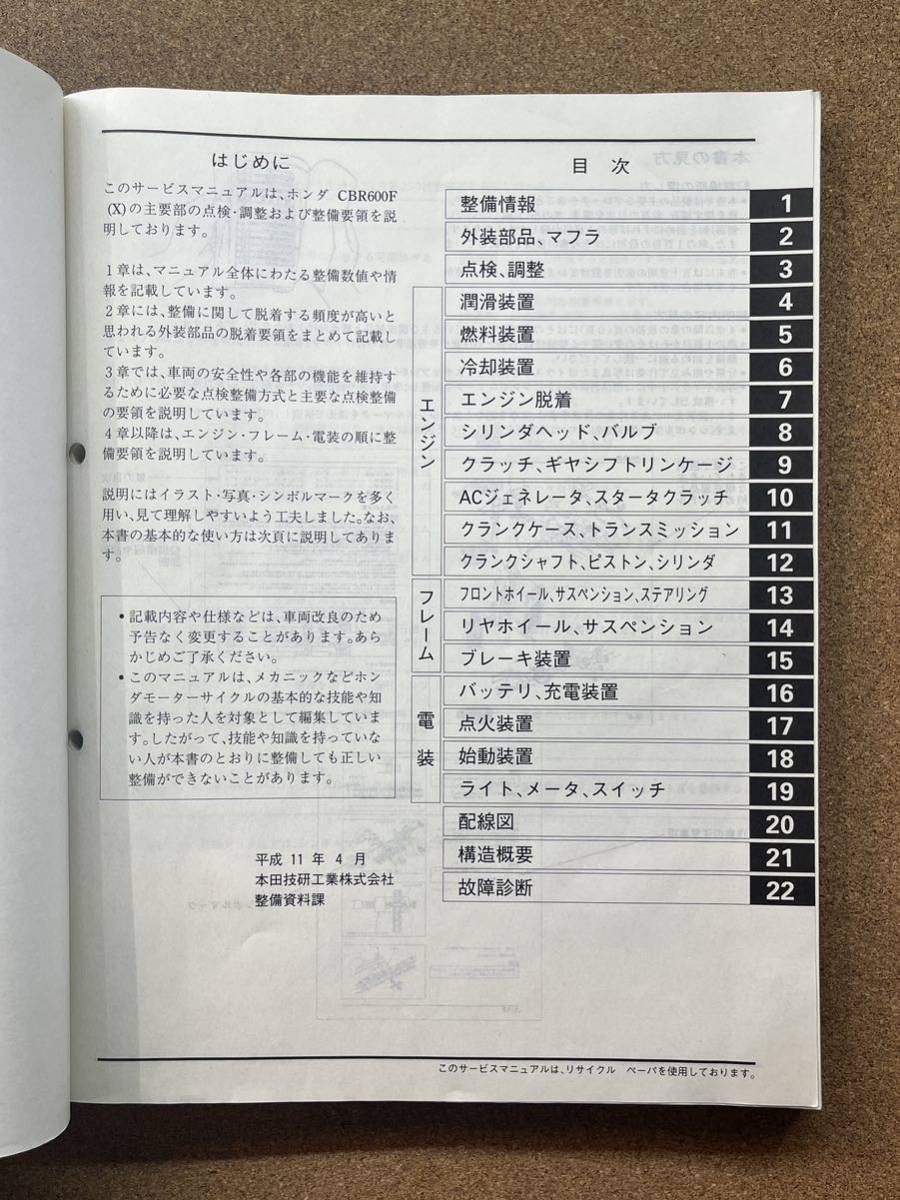 はじめに
このサービスマニュアルは、ホンダ CBR600F
(X)の主要部の点検・調整および整備要領を説
明しております。
1章は、マニュアル全体にわたる整備数値や情
報を記載しています。
2章には、整備に関して脱着する頻度が高いと
思われる外装部品の脱着要領をまとめて記載し
ています。
3章では、車両の安全性や各部の機能を維持す
るために必要な点検整備方式と主要な点検整備
の要領を説明しています。
4章以降は、エンジン・フレーム・電装の順に整
備要領を説明しています。
説明にはイラスト・写真・シンボルマークを多く
用い、見て理解しやすいよう工夫しました。なお、
本書の基本的な使い方は次頁に説明してありま
す。
・記載内容や仕様などは、車両改良のため
予告なく変更することがあります。あら
かじめご了承ください。
・このマニュアルは、メカニックなどホン
ダモーターサイクルの基本的な技能や知
識を持った人を対象として編集していま
す。したがって、技能や知識を持っていな
い人が本書のとおりに整備しても正しい
整備ができないことがあります。
平成 11 年 4 月
本田技研工業株式会社
整備資料課
目 次
整備情報 1
外装部品、マフラ 2
点検、調整 3
エンジン
潤滑装置 4
燃料装置 5
冷却装置 6
エンジン脱着 7
シリンダヘッド、バルブ 8
クラッチ、ギヤシフトリンケージ 9
ACジェネレータ、スタータクラッチ 10
クランクケース、トランスミッション 11
クランクシャフト、ピストン、シリンダ 12
フレーム
フロントホイール、サスペンション、ステアリング 13
リヤホイール、サスペンション 14
ブレーキ装置 15
電装
バッテリ、充電装置 16
点火装置 17
始動装置 18
ライト、メータ、スイッチ 19
配線図 20
構造概要 21
故障診断 22
このサービスマニュアルは、リサイクル ペーパを使用しております。